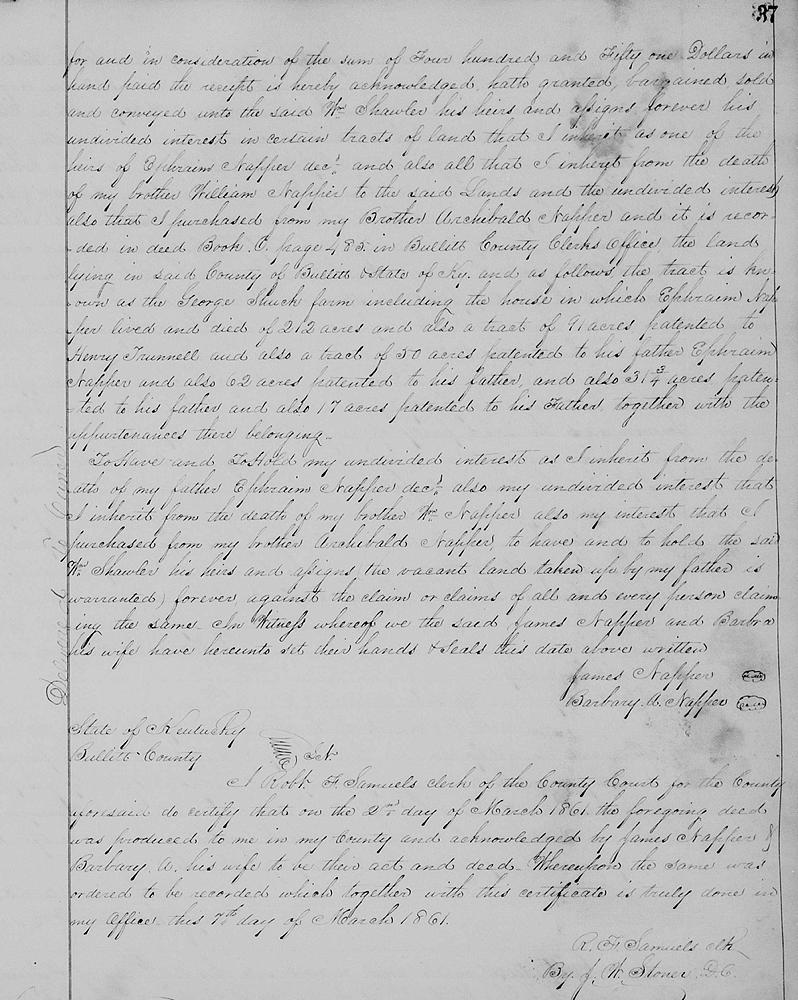 37
for and in consideration of the sum of Four hundred and Fifty one Dollars in
hand paid the receipt is hereby acknowledged, hath granted, bargained sold
and conveyed unto the said Wm Shawler his heirs and assigns forever his
undivided interest in certain tracts of land that I inherit as one of the
heirs of Ephraim Napper decd and also all that I inherit from the death
of my brother William Napper to the said Lands and the undivided interest
also that I purchased from my Brother Archibald Napper and it is recor-
-ded in deed Book O. page 485 in Bullitt County Clerks Office, the land
lying in said County of Bullitt & State of Ky. and as follows, the tract is kn-
-own as the George Shuck farm including the house in which Ephraim Nap-
per lived and died of 212 acres and also a tract of 91 acres patented to
Henry Trunnell and also a tract of 50 acres patented to his father Ephraim
Napper and also 62 acres patented to his father, and also 31 3/4 acres paten-
-ted to his father and also 17 acres patented to his Father, together with the
appurtenances there belonging-
To Have and To Hold my undivided interest as I inherit from the de-
ath of my father Ephraim Napper decd also my undivided interest that
I inherit from the death of my brother Wm Napper also my interest that I
purchased from my brother Archibald Napper, to have and to hold the said
Wm Shawler his heirs and assigns, the vacant land taken up by my father is
warranted) forever against the claim or claims of all and every person claim
ing the same- In Witness whereof we the said James Napper and Barbra
his wife have hereunto set their hands & Seals this date above written
James Napper
Barbary A. Napper
State of Kentucky
Bullitt County Sct.
I Robt. F. Samuels clerk of the County Court for the County
aforesaid do certify that on the 2nd day of March 1861. the foregoing deed
was produced to me in my County and acknowledged by James Napper &
Barbary. A. his wife to be their act and deed- Whereupon the same was
ordered to be recorded which together with this certificate is truly done in
my Office this 7th day of March 1861.
R. F. Samuels clk
By J. W. Stoner D.C.